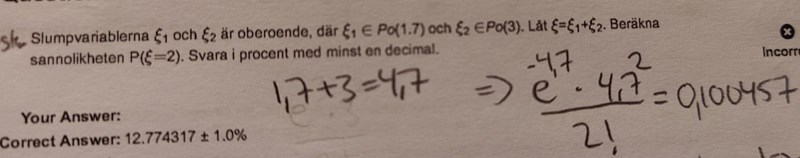 Slumpvariablerna ξ1 och ξ2 är oberoende, där ξ1 ∈ Po(1.7) och ξ2 ∈Po(3). Låt ξ=ξ1+ξ2. Beräkna
sannolikheten P(ξ=2). Svara i procent med minst en decimal.
Incorr
1,7+3=4,7 => e^-4,7 · 4,7^2 / 2! = 0,100457
Your Answer:
Correct Answer: 12.774317 ± 1.0%